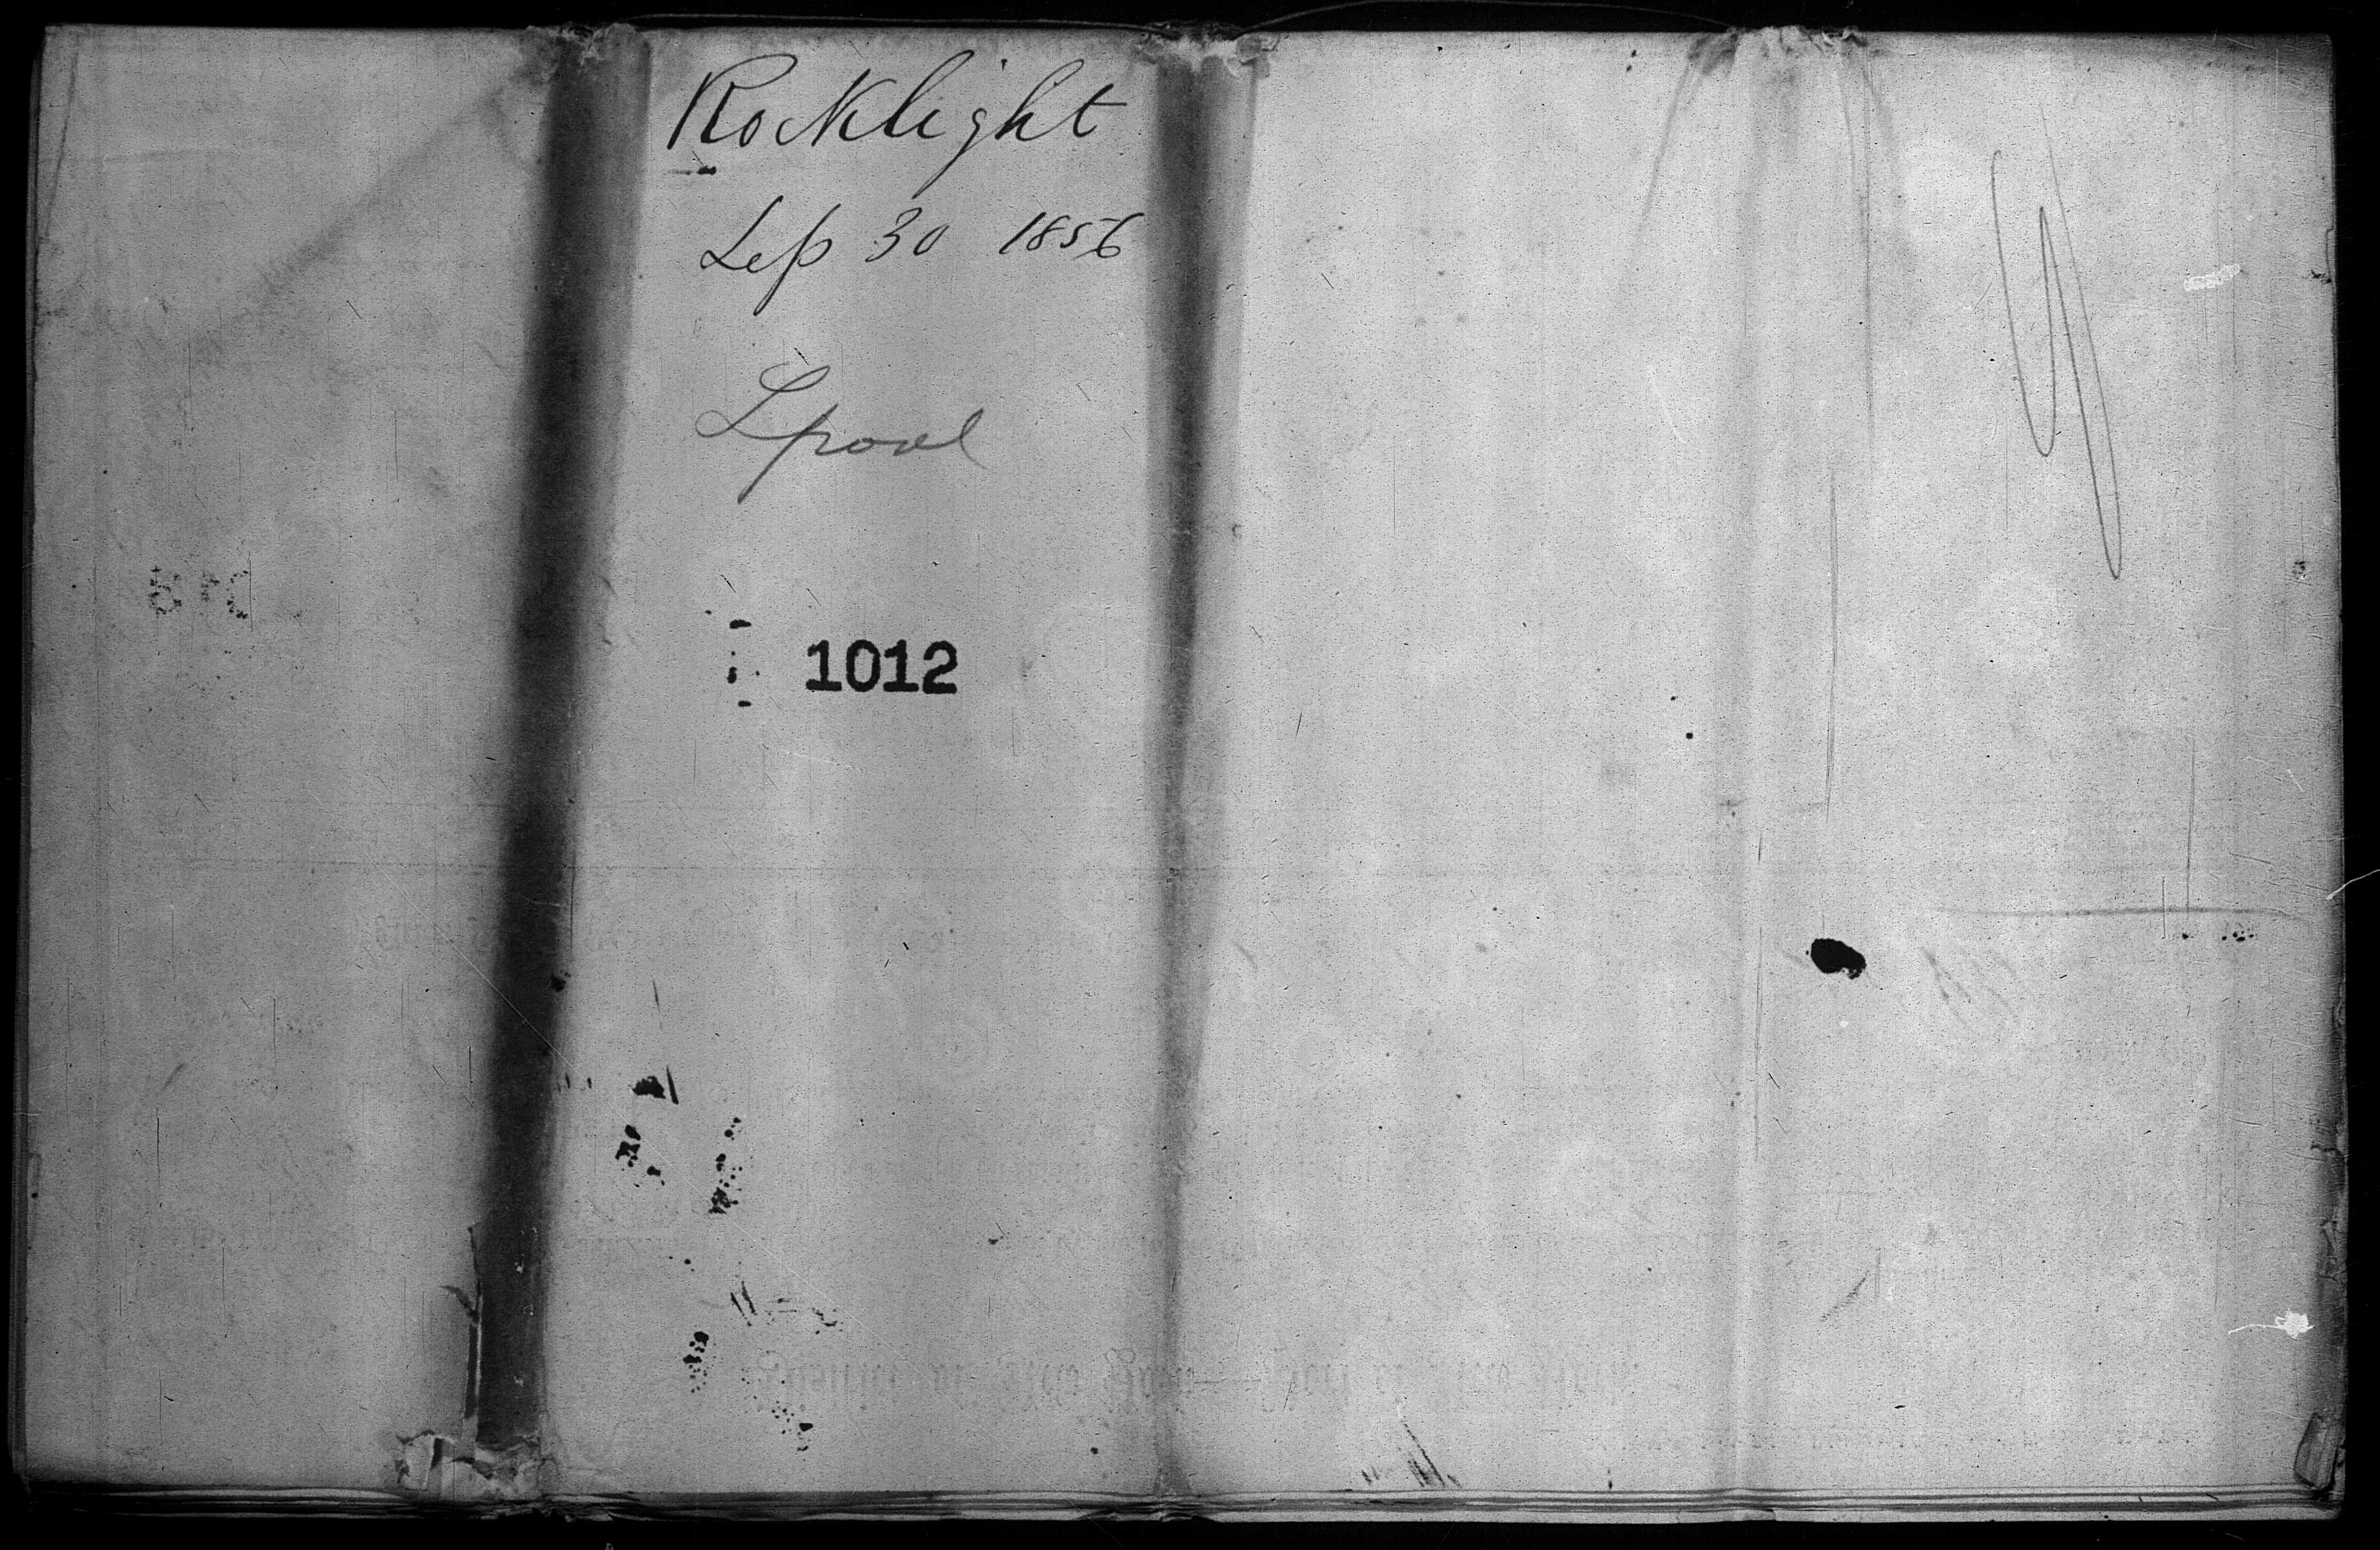 Rocklight
Sep 30 1856
Lpool
1012